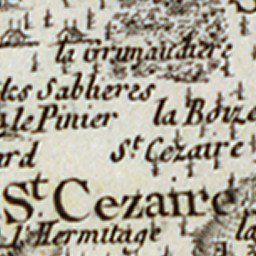 la Grumaudiere
les Sablieres
le Pinier la Boize
ard St. Cezaire
St. Cezaire
l'Hermitage la